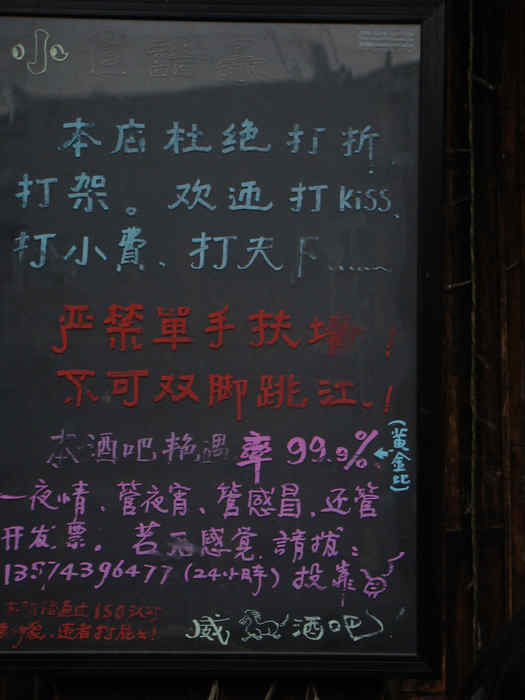 小
本店杜绝打折
打架。欢迎打kiss、
打小費、打天下......
严禁單手扶墙!
不可双脚跳江!
本酒吧艳遇率99.9%
(黄金比)
一夜情、管夜宵、管感冒、还管
开发票。若无感觉,請拔:
13574396477(24小時)投靠
威 酒吧